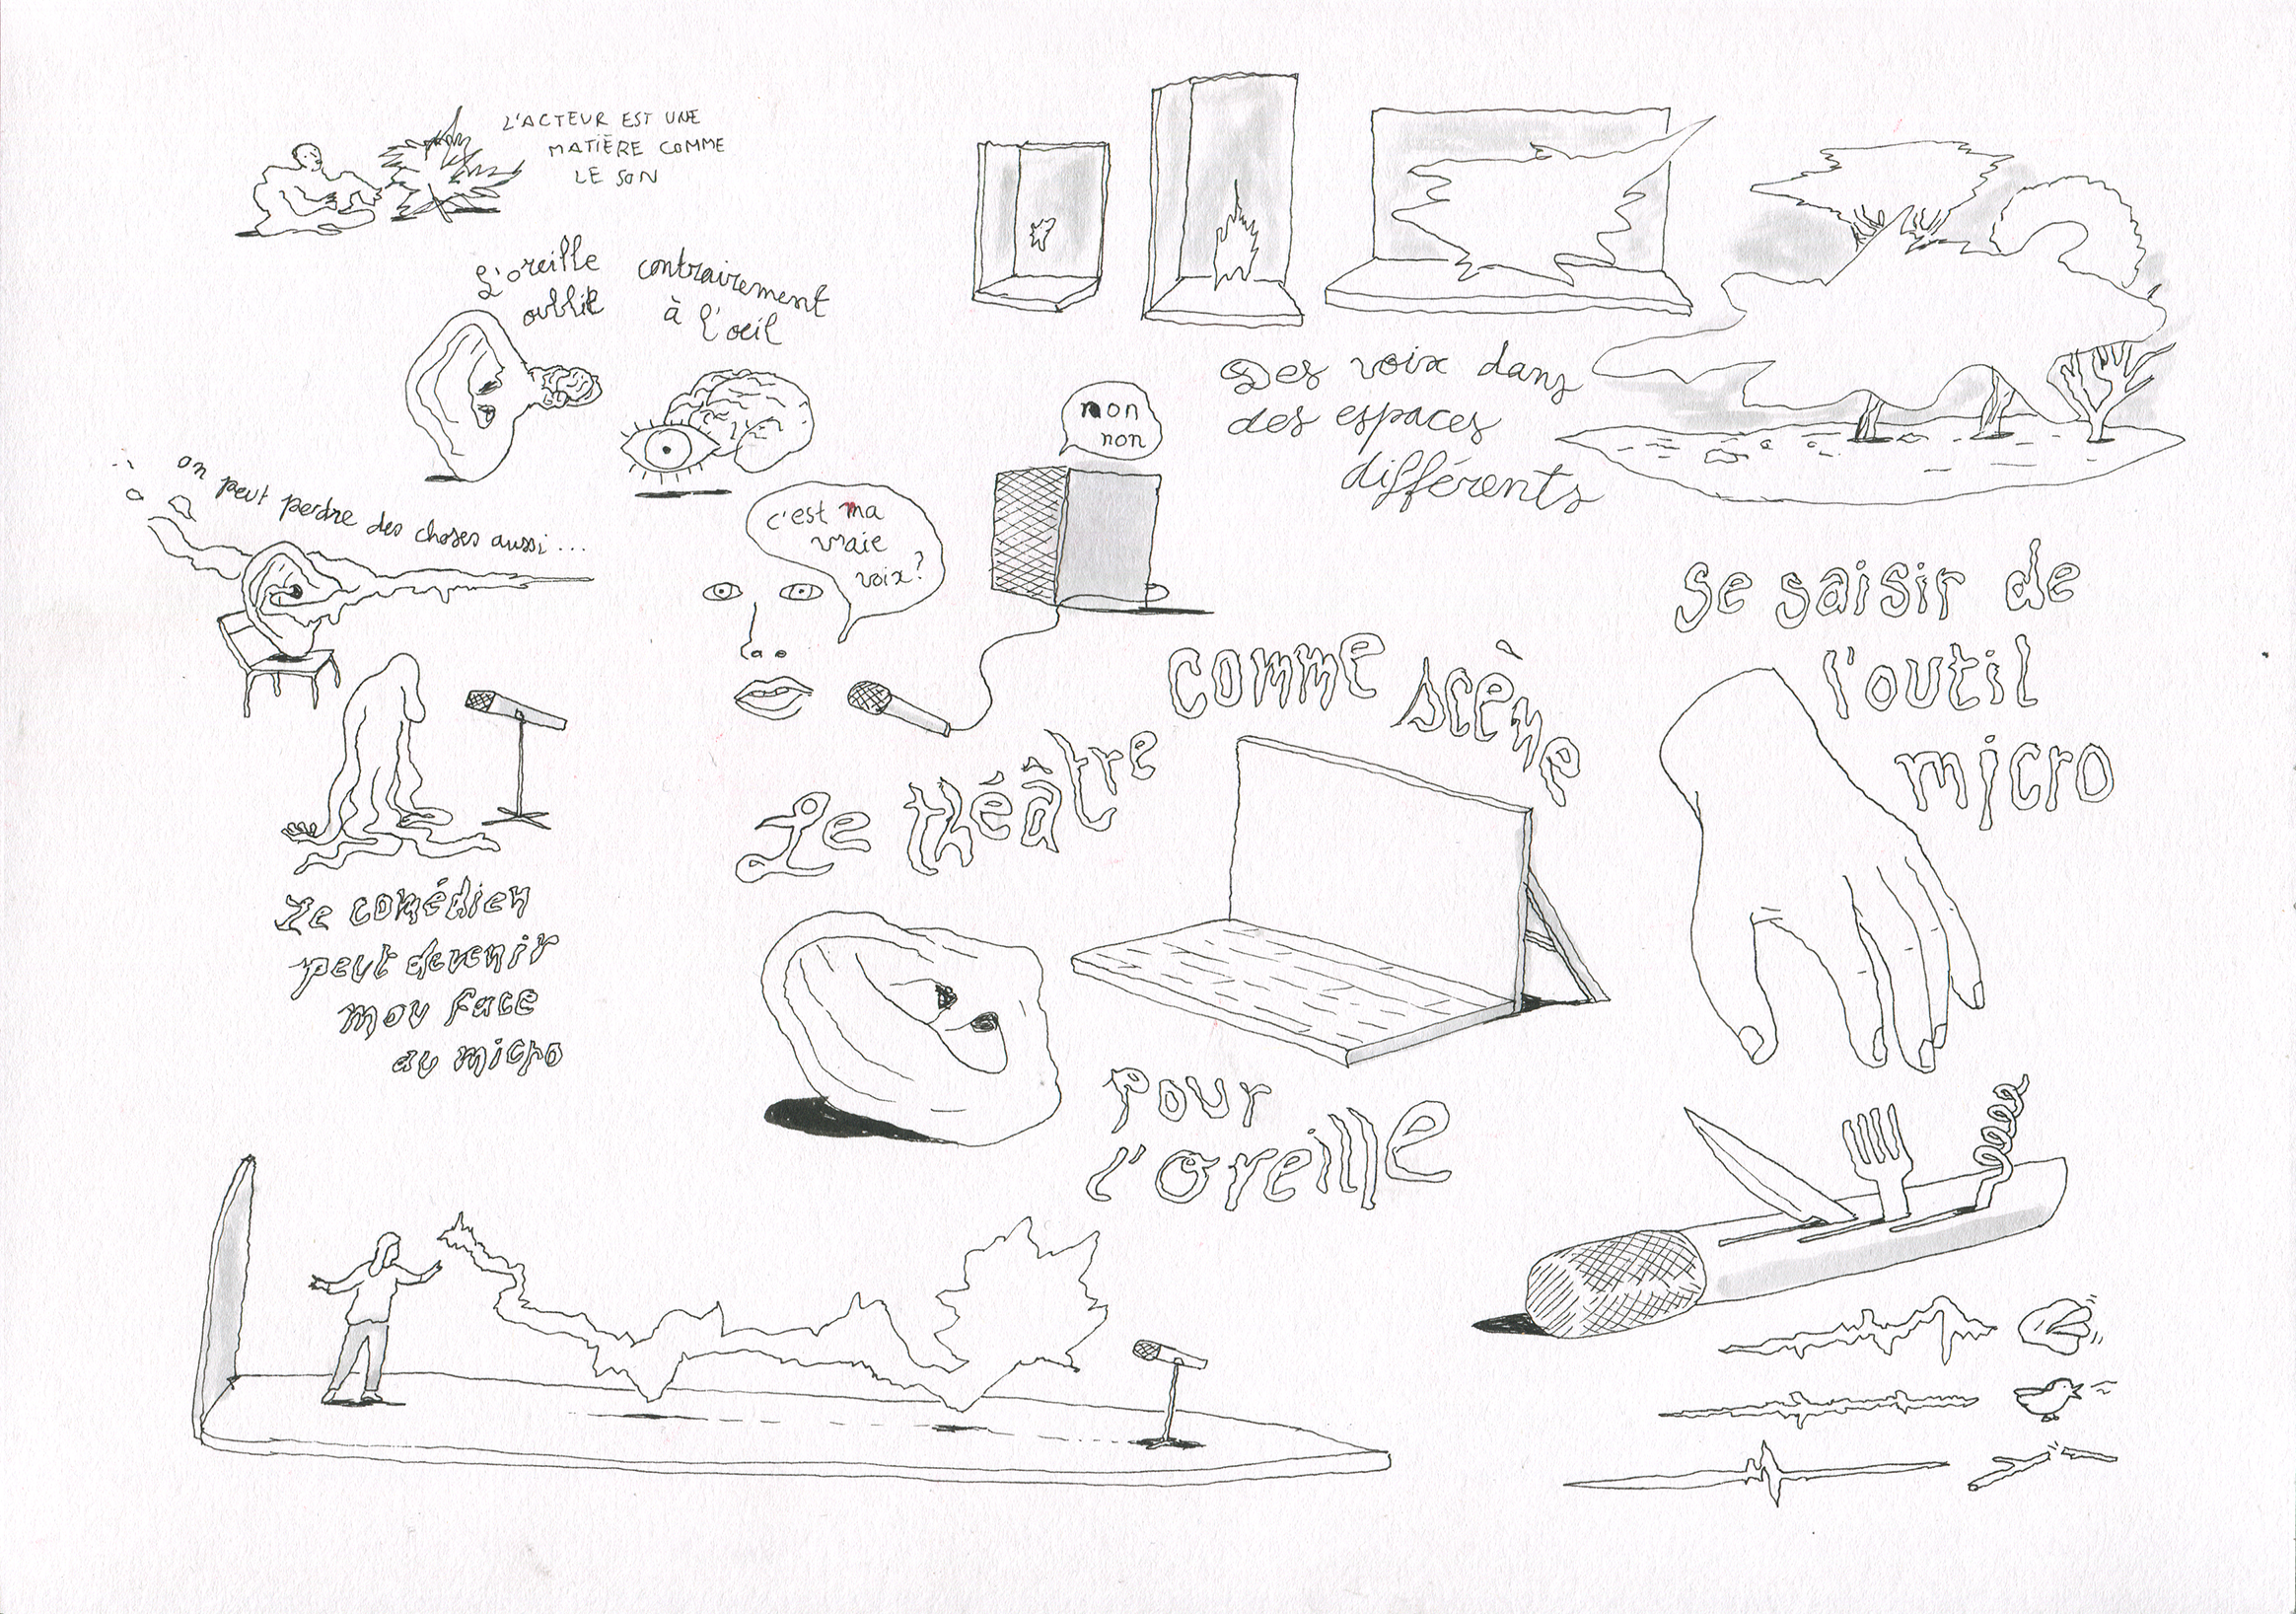 L'ACTEUR EST UNE
MATIÈRE COMME
LE SON
L'oreille
oublie
contrairement
à l'oeil
on peut perdre des choses aussi...
c'est ma
vraie
voix?
non
non
Des voix dans
des espaces
différents
Le comédien
peut devenir
mou face
au micro
Le théâtre
comme scène
pour
l'oreille
se saisir de
l'outil
micro